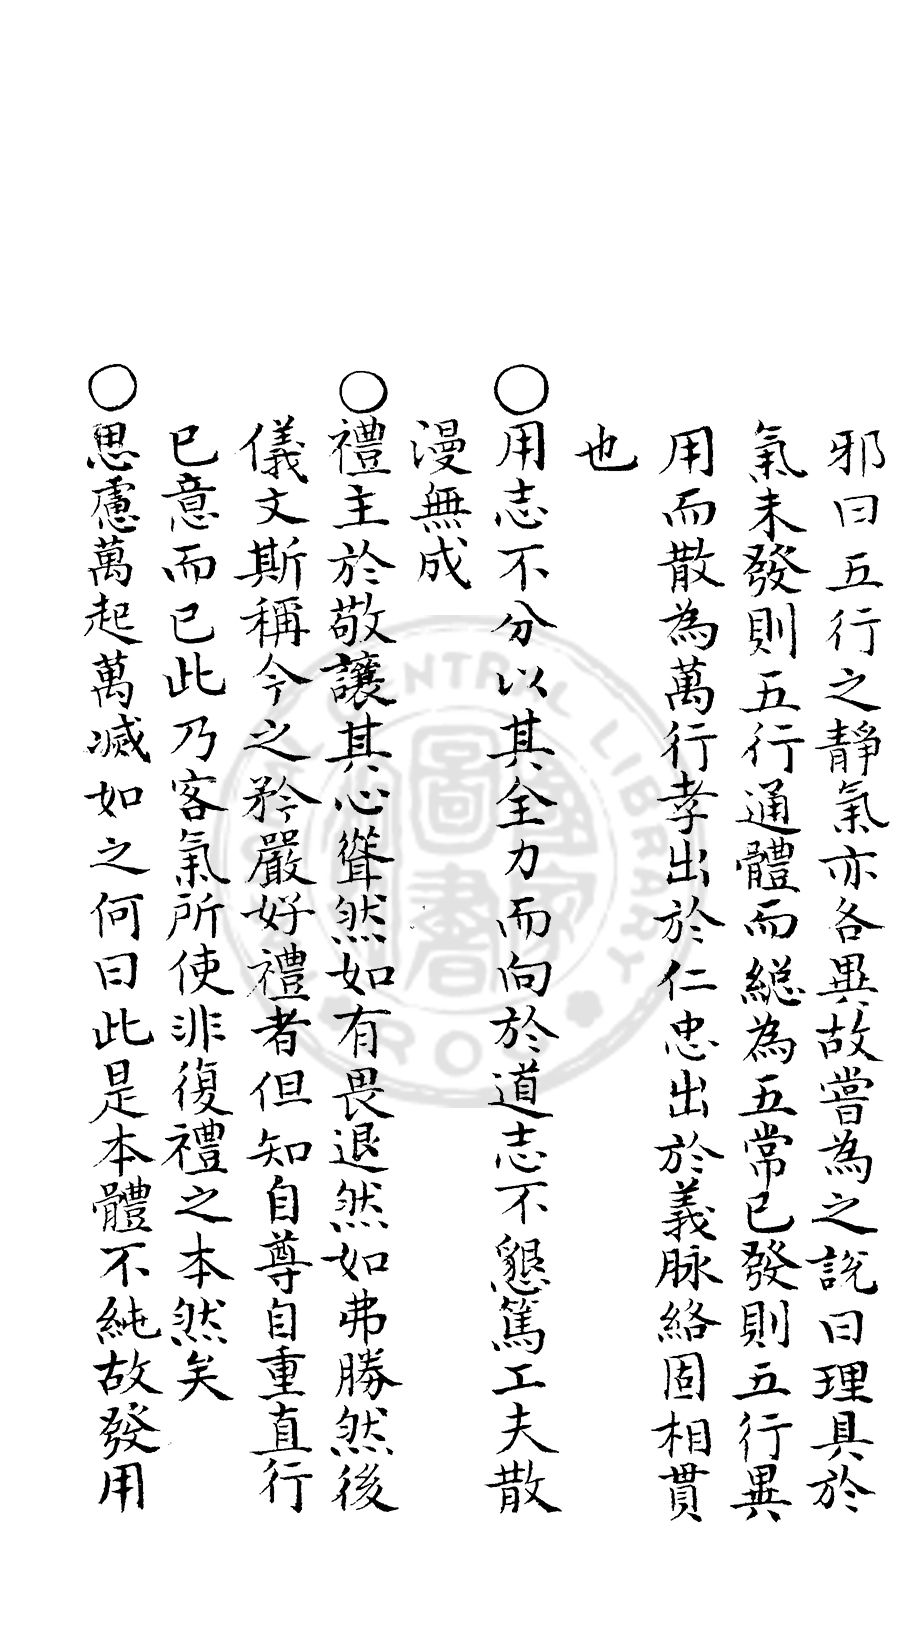 邪曰五行之靜氣亦各異故嘗為之說曰理具於
氣未發則五行通體而緫為五常已發則五行異
用而散為萬行孝出於仁忠出於義脉絡固相貫
也
○用志不分以其全力而向於道志不懇篤工夫散
漫無成
○禮主於敬讓其心聳然如有畏退然如弗勝然後
儀文斯稱今之矜嚴好禮者但知自尊自重直行
已意而已此乃客氣所使非復禮之本然矣
○思慮萬起萬滅如之何曰此是本體不純故發用
CENTRAL LIBRARY
R.O.C
國家圖書館